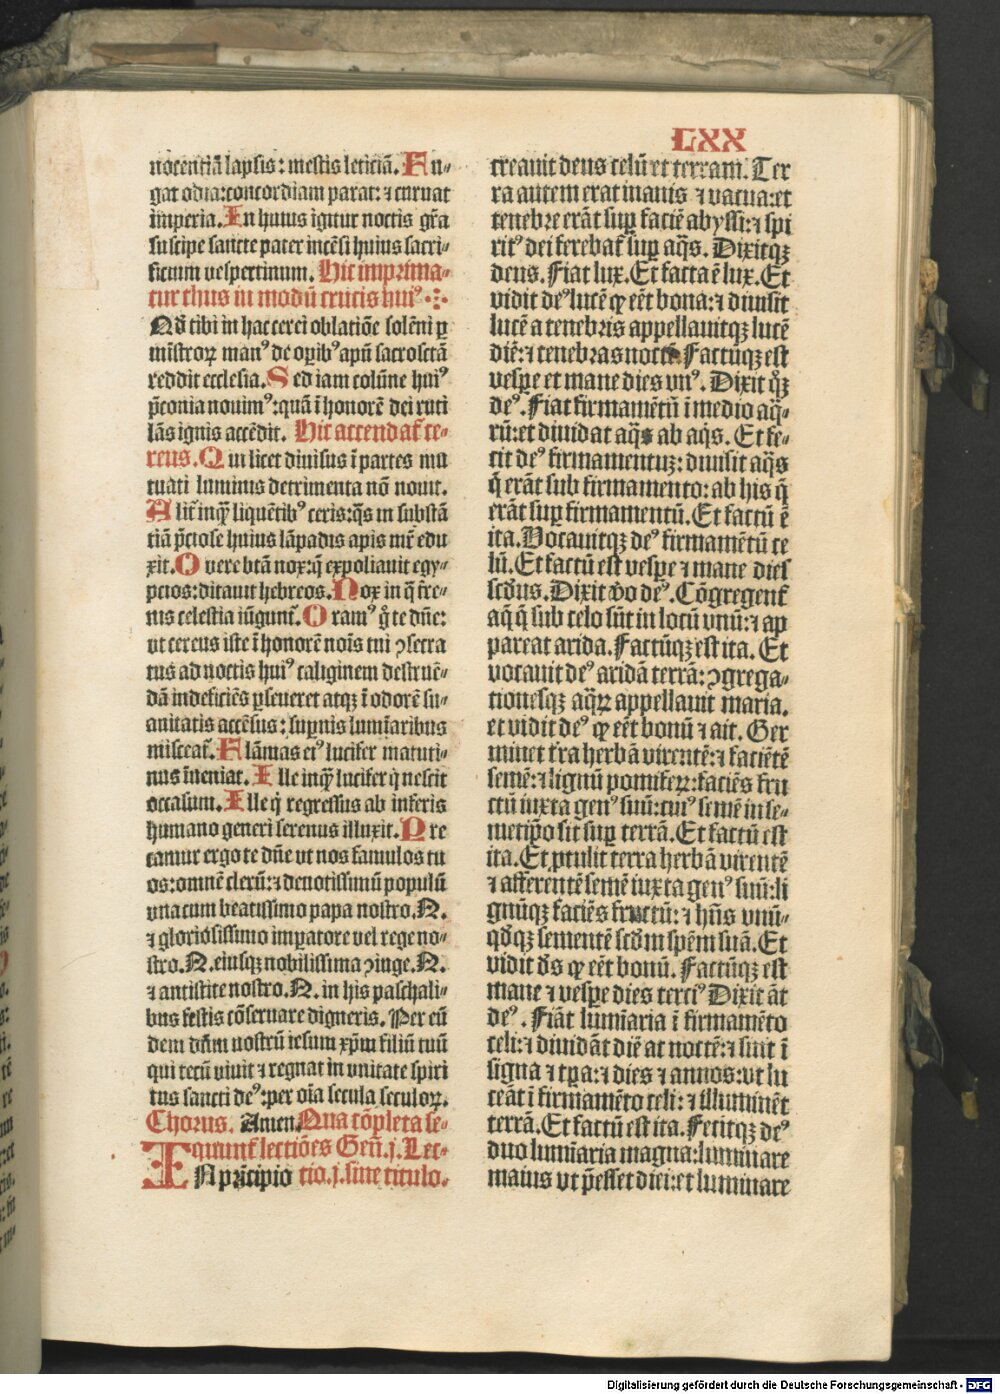 LXX
nocentiā lapsis: mestis leticiā. Fu-
gat odia: concordiam parat: ⁊ curuat
imperia. In huius igitur noctis gr̄a
suscipe sancte pater incēsi huius sacri-
ficium uespertinum. Hic imprima-
tur thus in modū crucis huiꝰ
Qđ tibi in hac cerei oblatiōe solēni ꝑ
mīstroꝝ manꝰ de oꝑibꝰ apū sacrosctā
reddit ecclesia. Sed iam colūne huiꝰ
p̄conia nouimꝰ: quā ī honorē dei ruti
lās ignis accēdit. Hic accendat̄ ce-
reus. Qui licet diuisus ī partes mu
tuati luminis detrimenta nō nouit.
Alit̄ inqꝫ liquētibꝰ ceris: q̄s in substā
tiā p̄ciose huius lāpadis apis mr̄ edu
xit. O uere btā nox: q̄ expoliauit egy-
pcios: ditauit hebreos. Nox in q̄ t̄re-
nis celestia iūgunt̄. Oramꝰ g̊ te dn̄e:
ut cereus iste ī honorē nōis tui ꝯsecra
tus ad noctis huiꝰ caliginem destruē-
dā indeficiēs ꝑseueret atqꝫ ī odorē su-
auitatis accēsus: suꝑnis lumīaribus
misceat̄. Flāmas eiꝰ lucifer matuti-
nus īueniat. Ille inqꝫ lucifer q̇ nescit
occasum. Ille q̇ regressus ab inferis
humano generi serenus illuxit. Pre
camur ergo te dn̄e ut nos famulos tu
os: omnē clerū: ⁊ deuotissimū populū
una cum beatissimo papa nostro. N.
⁊ gloriosissimo imꝑatore uel rege no-
stro. N. eiusqꝫ nobilissima ꝯiuge. N.
⁊ antistite nostro. N. in his paschali-
bus festis cōseruare digneris. Per eū
dem dn̄m nostrū iesum xp̄m filiū tuū
qui tecū uiuit ⁊ regnat in unitate spiri
tus sancti deꝰ: per oīa secula seculoꝝ.
Chorus. Amen. Qua cōpleta se-
quunt̄ lectiōes Gen̄. j. Lec-
IN pricipio tio. j. sine titulo.
creauit deus celū et terram. Ter
ra autem erat inanis ⁊ uacua: et
tenebre erāt suꝑ faciē abyssi: ⁊ spi
ritꝰ dei ferebat̄ suꝑ aq̄s. Dixitqꝫ
deus. Fiat lux. Et facta ē lux. Et
vidit deꝰ lucē ꝙ eēt bona: ⁊ diuisit
lucē a tenebris appellauitqꝫ lucē
diē: ⁊ tenebras noctē Factūqꝫ est
vesꝑe et mane dies vnꝰ. Dixit q̊ꝫ
deꝰ. Fiat firmamētū ī medio aq̄-
rū: et diuidat aq̄s ab aq̄s. Et fe-
cit deꝰ firmamentuꝫ: diuisit aq̄s
q̄ erāt sub firmamento: ab his q̄
erāt suꝑ firmamentū. Et factū ē
ita. Vocauitqꝫ deꝰ firmamētū ce
lū. Et factū est vesꝑe ⁊ mane dies
scd̄us. Dixit v̊o deꝰ. Cōgregent̄
aq̄ q̄ sub celo sūt in locū vnū: ⁊ ap
pareat arida. Factūqꝫ est ita. Et
vocauit deꝰ aridā terrā: ꝯgrega-
tionesqꝫ aq̄ꝝ appellauit maria.
et vidit deꝰ ꝙ eēt bonū ⁊ ait. Ger
minet t̄ra herbā virentē: ⁊ faciētē
semē: ⁊ lignū pomiferꝝ: faciēs fru
ctū iuxta genꝰ suū: cuiꝰ semē in se-
metip̄o sit suꝑ terrā. Et factū est
ita. Et ꝓtulit terra herbā virentē
⁊ afferentē semē iuxta genꝰ suū: li
gnūqꝫ faciēs fructū: ⁊ hn̄s vnū-
qd̄qꝫ sementē scd̄m sp̄em suā. Et
vidit ds̄ ꝙ eēt bonū. Factūqꝫ est
mane ⁊ vesꝑe dies terciꝰ Dixit āt
deꝰ. Fiāt lumīaria ī firmamēto
celi: ⁊ diuidāt diē ac noctē: ⁊ sint ī
signa ⁊ tꝑa: ⁊ dies ⁊ annos: vt lu
ceāt ī firmamēto celi: ⁊ illuminēt
terrā. Et factū est ita. Fecitqꝫ deꝰ
duo lumīaria magna: luminare
maius vt p̄esset diei: et luminare
Digitalisierung gefördert durch die Deutsche Forschungsgemeinschaft - DFG